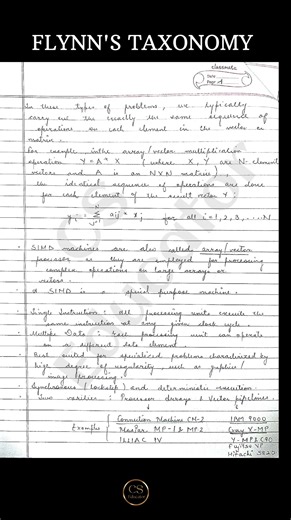 FLYNN'S TAXONOMY
classmate
Date
Page
In these types of problems, we typically
carry out the exactly the same sequence of
operations on each element in the vector or
matrix.
For example in the array/vector multiplication
operation Y = A * X (where X, Y are N-element
vectors and A is an N×N matrix)
the identical sequence of operations are done
for each element of the result vector Y.
yi = Σ aij * xj for all i = 1, 2, 3, ....N
SIMD machines are also called array/vector
processor as they are employed for processing
complex operations on large arrays or
vectors.
A SIMD is a special purpose machine.
Single Instruction: All processing units execute the
same instruction at any given clock cycle.
Multiple Data: Each processing unit can operate
on a different data element.
Best suited for specialized problems characterized by
high degree of regularity, such as graphics/
image processing.
Synchronous (lockstep) and deterministic execution.
Two varieties: Processor Arrays & Vector pipelines.
Connection Machine CM-2 IBM 9000
Examples MasPar MP-1 & MP2 Cray Y-MP
ILLIAC IV Y-MP & C90
Fujitsu VP
Hitachi S820
CS
Educator